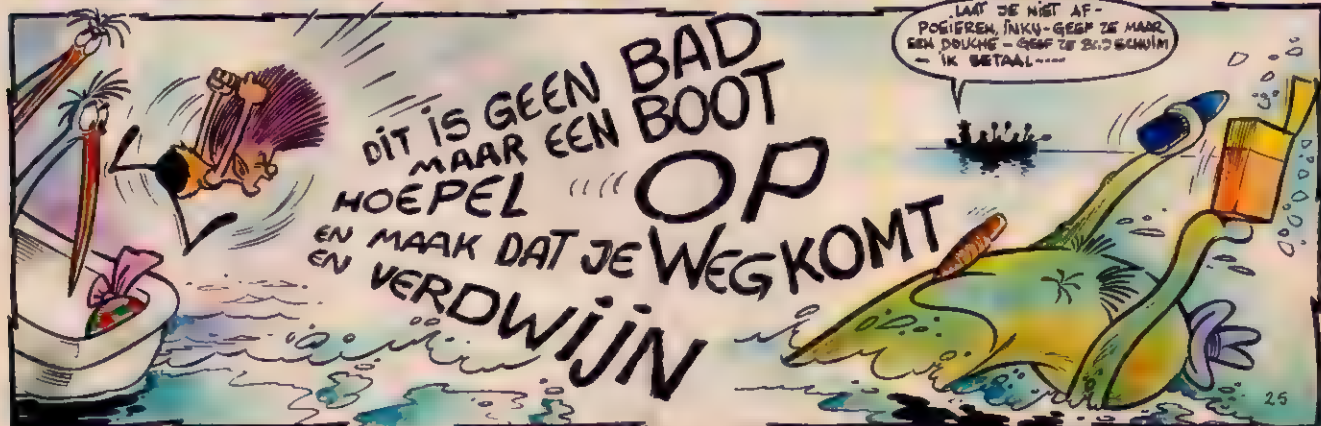 DIT IS GEEN BAD
MAAR EEN BOOT
HOEPEL OP
EN MAAK DAT JE WEGKOMT
EN VERDWIJN
LAAT JE NIET AF-
POEIEREN, INKU-GEEF ZE MAAR
EEN DOUCHE - GEEF ZE SCHUIM
- IK BETAAL----
25